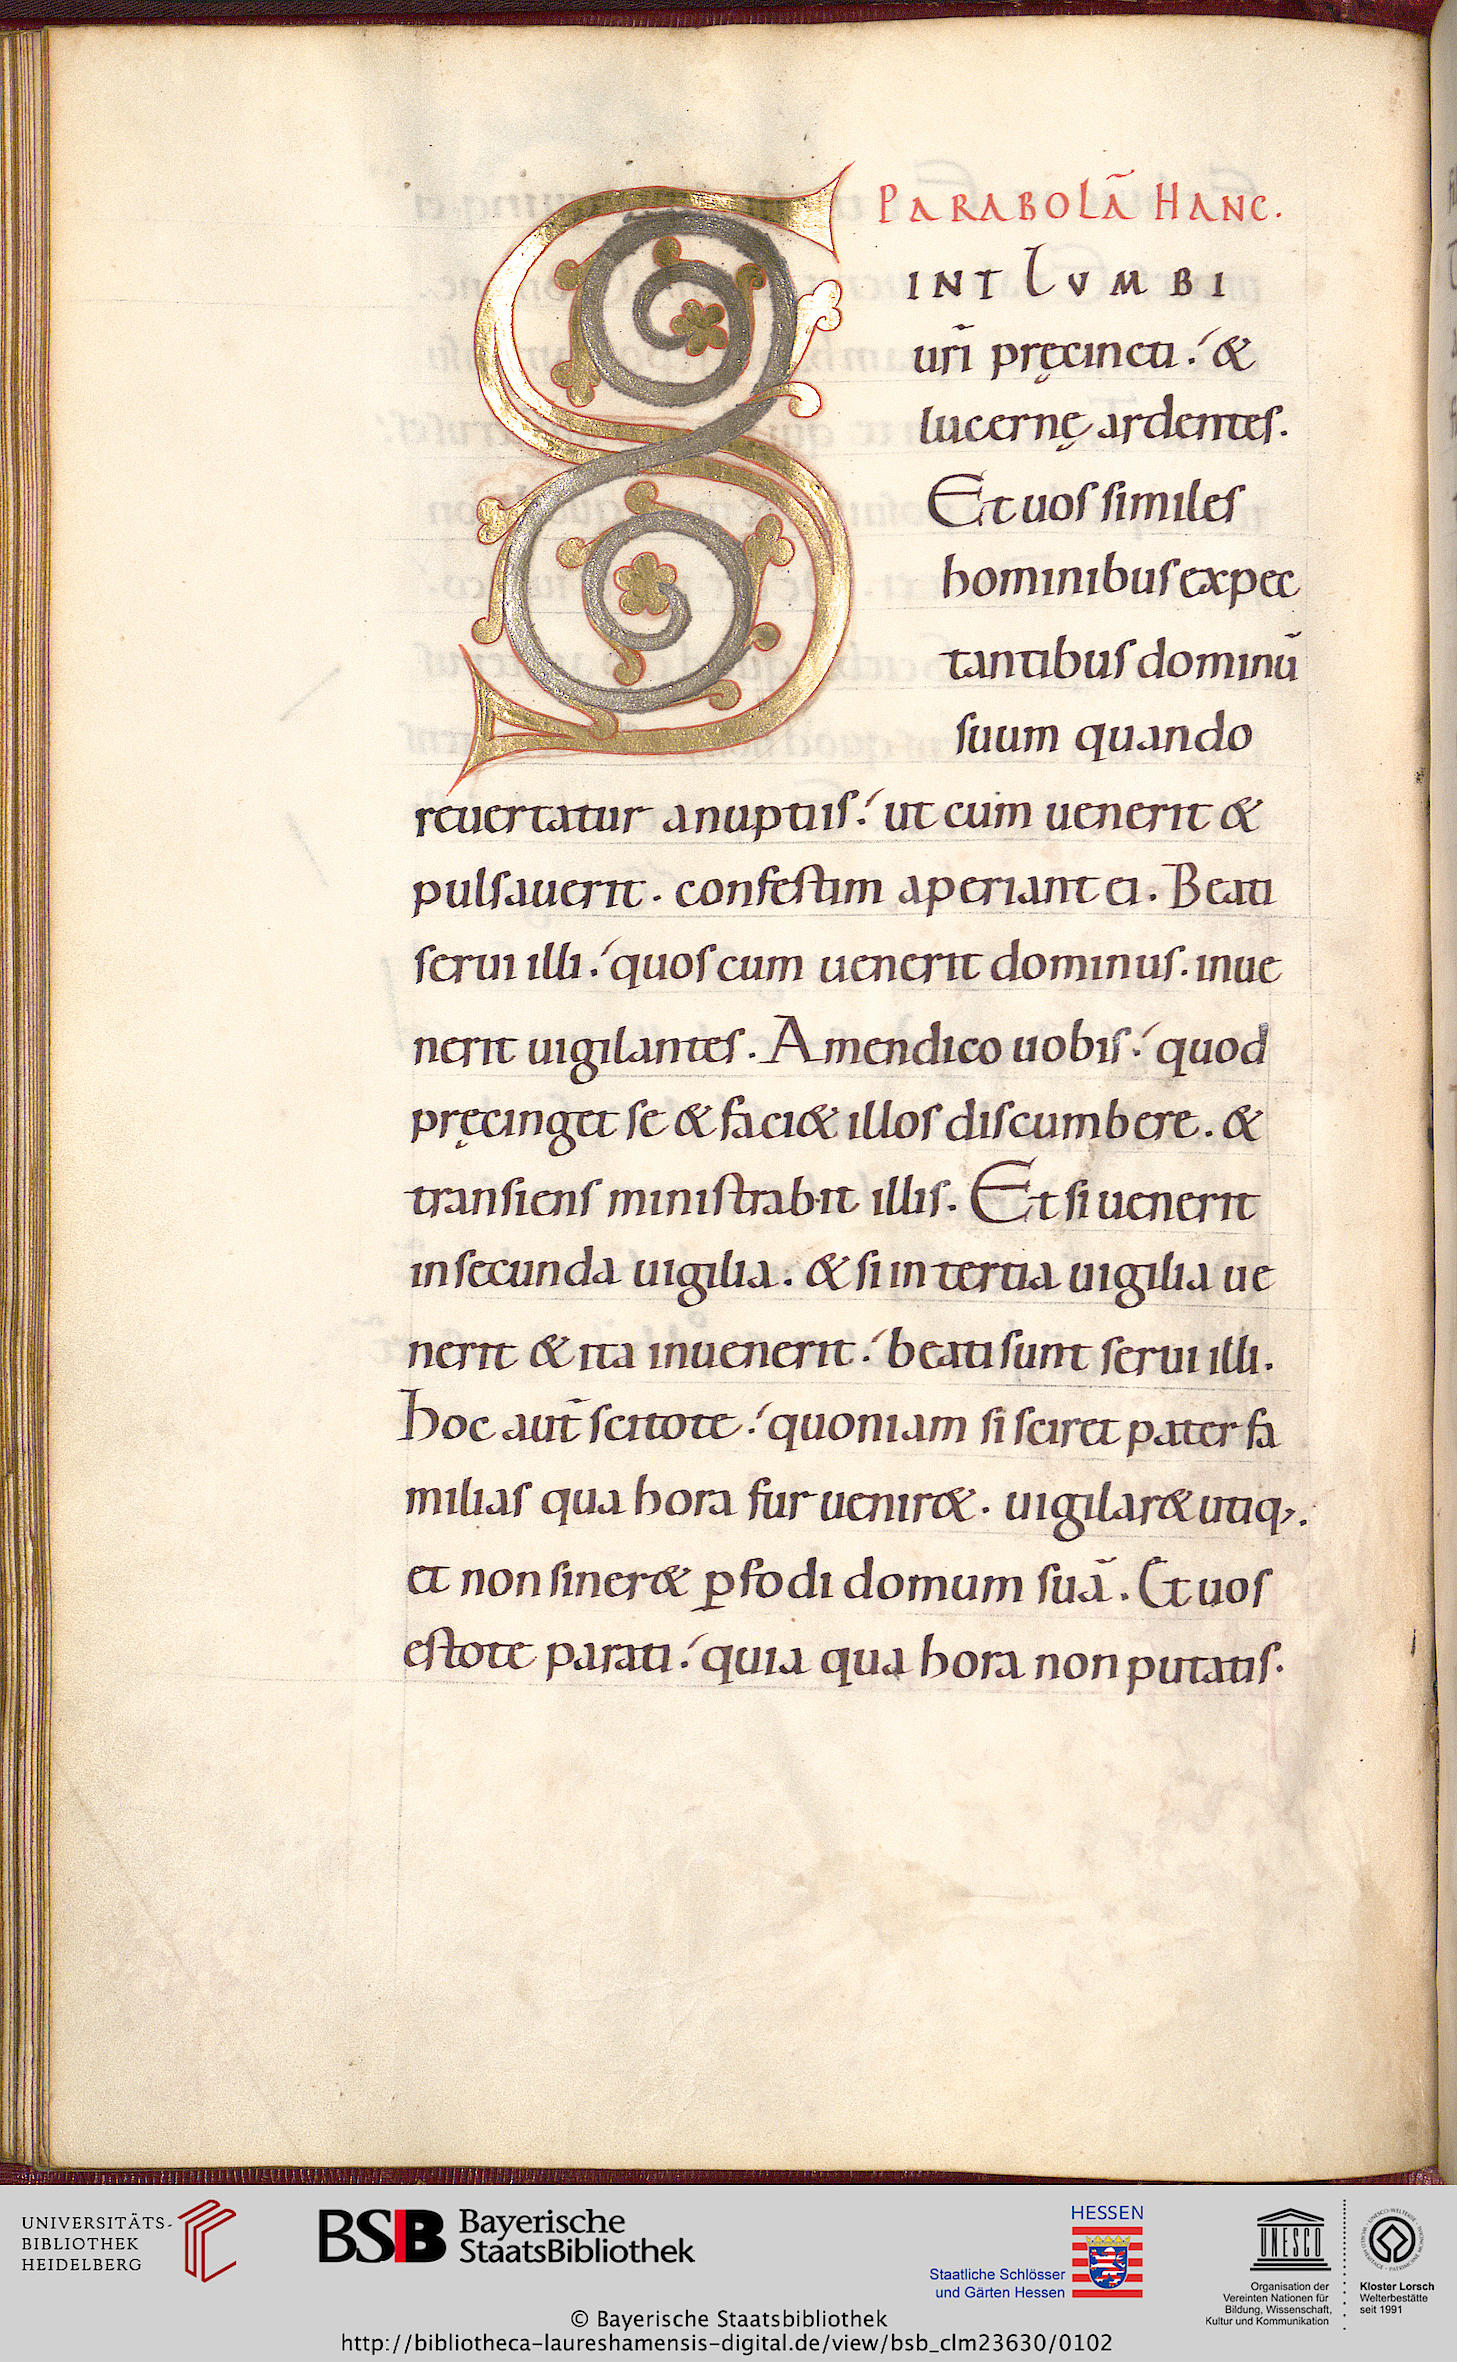 PARABOLÃ HANC.
SINT LUMBI
ur̃i pręcincti: &
lucernę ardentes.
Et uos similes
hominibus expec
tantibus dominũ
suum quando
reuertatur a nuptiis: ut cum uenerit &
pulsauerit. confestim aperiant ei. Beati
serui illi: quos cum uenerit dominus. inue
nerit uigilantes. Amen dico uobis: quod
pręcinget se & faci& illos discumbere. &
transiens ministrabit illis. Et si uenerit
in secunda uigilia. & si in tertia uigilia ue
nerit & ita inuenerit: beati sunt serui illi.
Hoc aut̃ scitote: quoniam si sciret pater fa
milias qua hora fur uenir&. uigilar& utiq;.
et non siner& ꝑfodi domum suã. Et uos
estote parati: quia qua hora non putatis.
UNIVERSITÄTS-
BIBLIOTHEK
HEIDELBERG
BSB Bayerische
StaatsBibliothek
HESSEN
Staatliche Schlösser
und Gärten Hessen
UNESCO
Organisation der
Vereinten Nationen für
Bildung, Wissenschaft,
Kultur und Kommunikation
Kloster Lorsch
Welterbestätte
seit 1991
© Bayerische Staatsbibliothek
http://bibliotheca-laureshamensis-digital.de/view/bsb_clm23630/0102